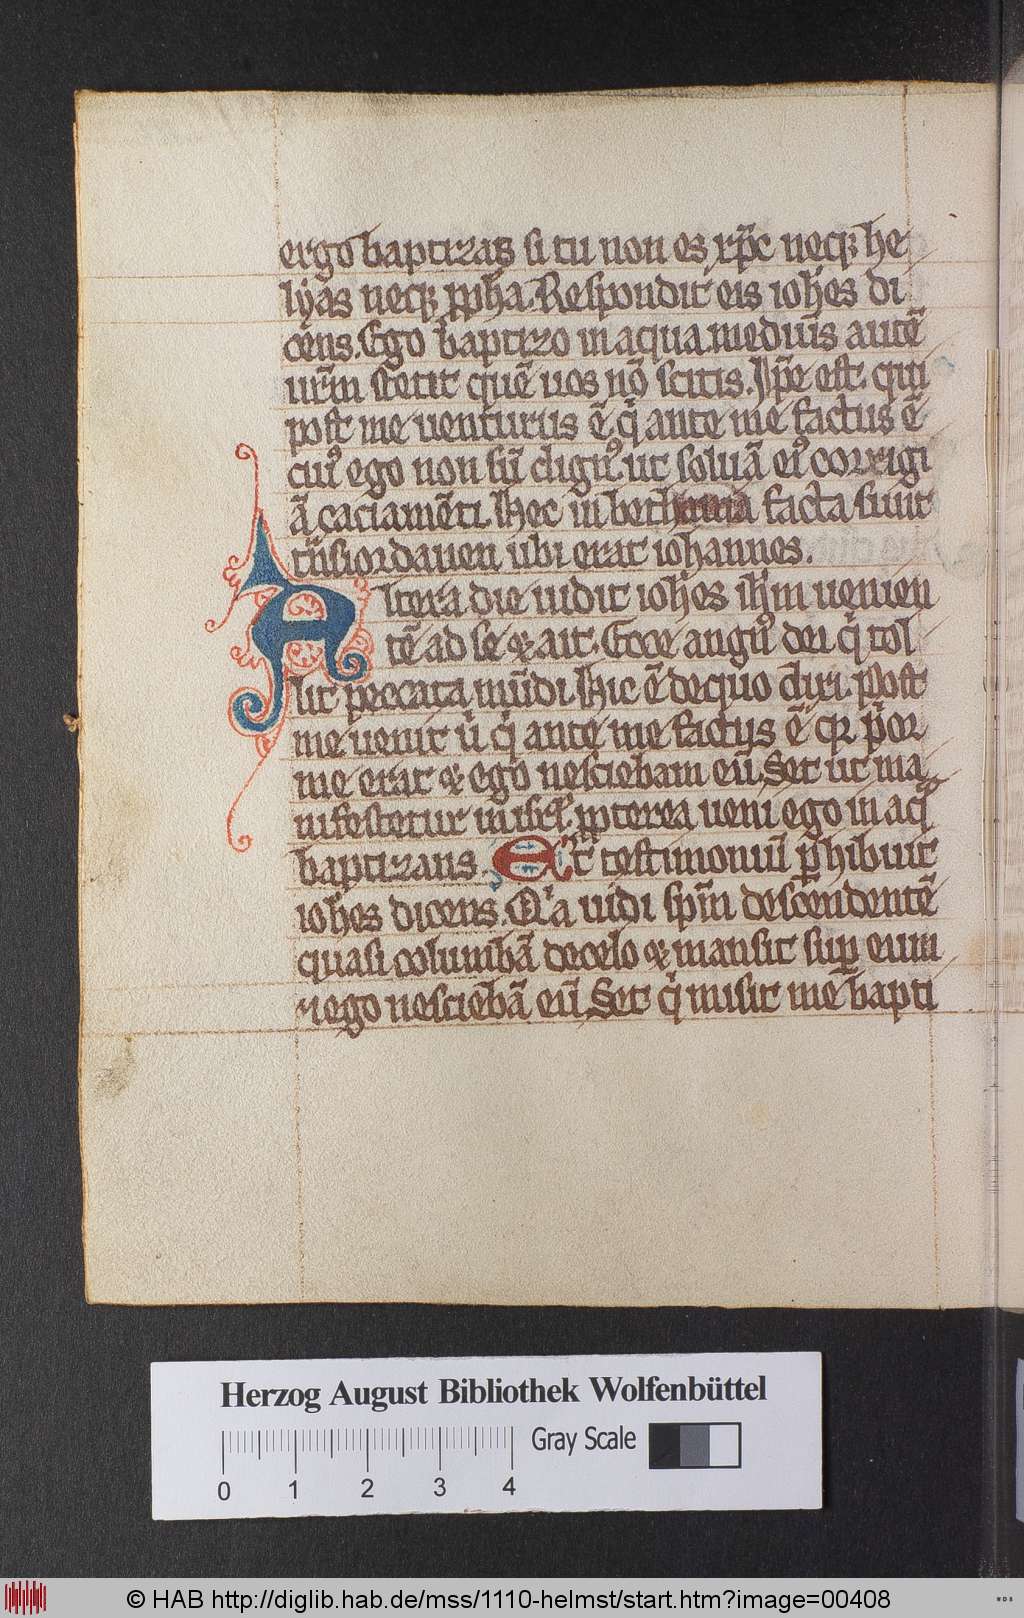 ergo baptizas si tu non es xp̄c neqꝫ he
lyas neqꝫ ꝓpha. Respondit eis ioh̄es di
cens. Ego baptizo in aqua. medius autē
urm̄ stetit quē uos nō scitis. Ip̄e est. qui
post me uenturus ē qͥ ante me factus ē
cuiꝰ ego non sū dignꝰ. ut soluā eiꝰ corrigi
ā caciamēti. Hec in bethania facta sunt
tͣnsiordanen ubi erat iohannes.
Altera die uidit ioh̄es ih̄m uenien
tē ad se ⁊ ait. Ecce angnꝰ dei qͥ tol
lit peccata mūdi. Hic ē dequo dixi. Post
me uenit ur̄ qͥ ante me factus ē qꝛ pͥor
me erat ⁊ ego nesciebam eū. Set ut ma
nifestetur in isrl̄. ꝓpterea ueni ego in aqͣ
baptizans. Et testimoniū ꝑhibuit
ioh̄es dicens. Qͥa uidi sp̄m descendentē
quasi columbā decelo ⁊ mansit suꝑ eum
⁊ ego nesciebā eū. Set qͥ misit me bapti
Herzog August Bibliothek Wolfenbüttel
Gray Scale
0 1 2 3 4
© HAB http://diglib.hab.de/mss/1110-helmst/start.htm?image=00408